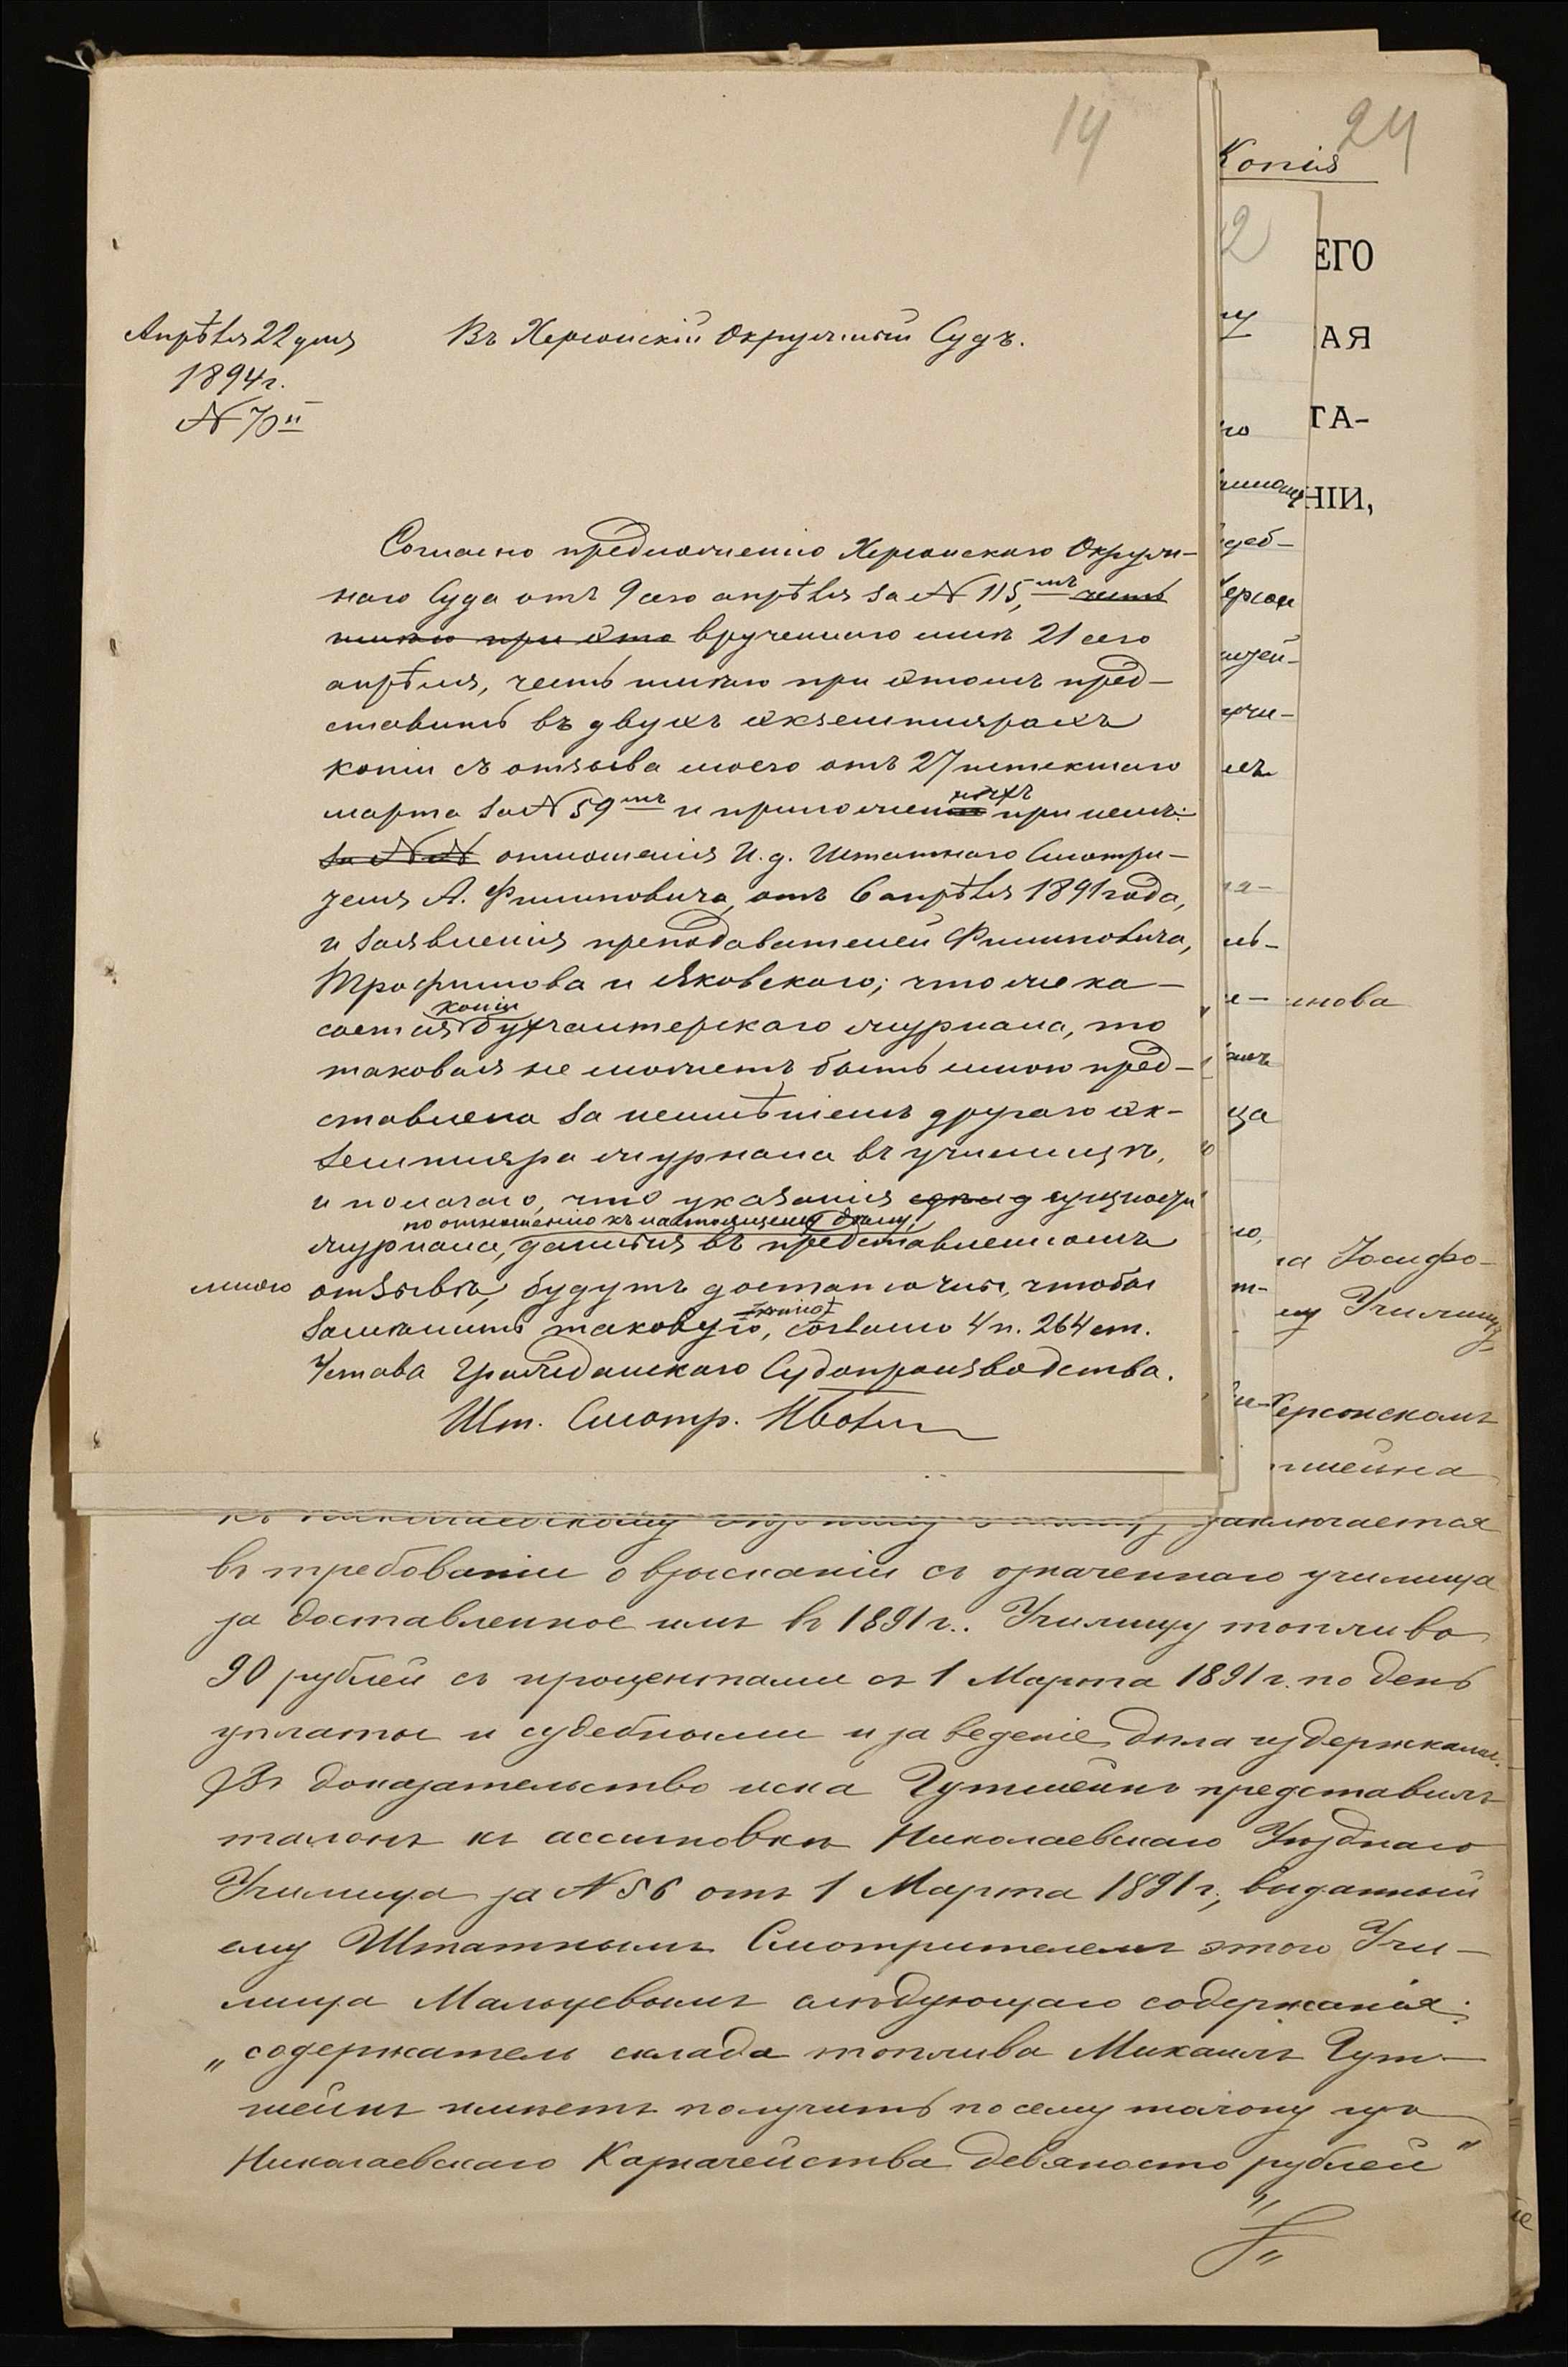 14
24
Копія
2
ЕГО
АЯ
ТА-
НІИ,
Апрѣля 22 дня
1894 г.
№ 70й
Въ Херсонскій Окружный Судъ.
Согласно предложенію Херсонскаго Окруж-
наго Суда отъ 9 сего апрѣля за № 115,мъ честь
имѣю при этом врученнаго мнѣ 21 сего
апрѣля, честь имѣю при этомъ пред-
ставить въ двухъ экземплярахъ
копіи съ отзыва моего отъ 27 истекшаго
марта за № 59мъ и приложенныхъ при немъ:
за №№ отношенія И. д. Штатнаго Смотри-
теля А. Филиповича, отъ 6 апрѣля 1891 года,
и заявленія преподавателей Филиповича,
Трофимова и Яковскаго; что же ка-
копіи
сается бухгалтерскаго журнала, то
таковая не можетъ быть мною пред-
ставлена за неимѣніемъ другаго эк-
земпляра журнала въ училищѣ,
и полагаю, что указанія сущности
по отношенію къ настоящему дѣлу,
журнала, данныя въ представленномъ
мною отзывѣ, будутъ достаточны, чтобы
замѣнить таковую, согласно 4 п. 264 ст.
Устава Гражданскаго Судопроизводства.
Шт. Смотр.
инова
Іосифо-
Училищу
Херсонскомъ
заключается
въ требованіи о взысканіи съ означеннаго училища
за доставленное имъ въ 1891 г. Училищу топливо
90 рублей съ процентами съ 1 Марта 1891 г. по день
уплаты и судебными и за веденіе дѣла издержками.
Въ доказательство иска Гутшейнъ представилъ
талонъ къ ассигновкѣ Николаевскаго Уѣзднаго
Училища за № 56 отъ 1 Марта 1891 г., выданный
ему Штатнымъ Смотрителемъ этого Учи-
лища Мальцевымъ слѣдующаго содержанія:
„содержатель склада топлива Михаилъ Гут-
шейнъ имѣетъ получить по сему талону изъ
Николаевскаго Казначейства девяносто рублей"